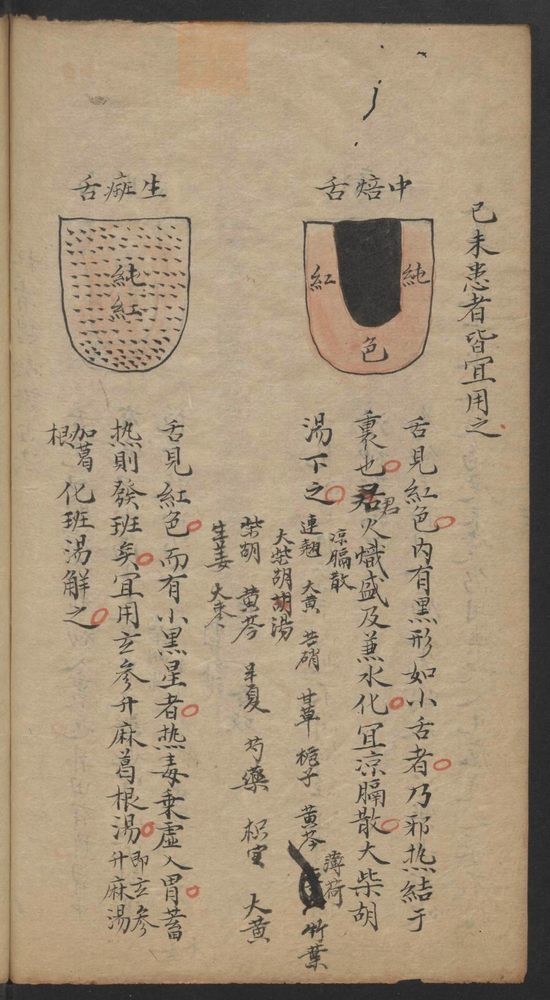 已未患者皆宜用之
中焙舌
純
紅
色
舌見紅色內有黑形如小舌者乃邪热結于
裏也君火熾盛及兼水化宜凉膈散大柴胡
湯下之
凉膈散
連翹 大黄 芒硝 甘草 梔子 黄芩 薄荷 竹葉
大柴胡湯
柴胡 黄芩 半夏 芍藥 枳实 大黄
生姜 大枣
生瘢舌
純
紅
舌見紅色而有小黑星者热毒乗虛入胃蓄
热則發班矣宜用玄参升麻葛根湯即玄参升麻湯
加葛根化班湯解之